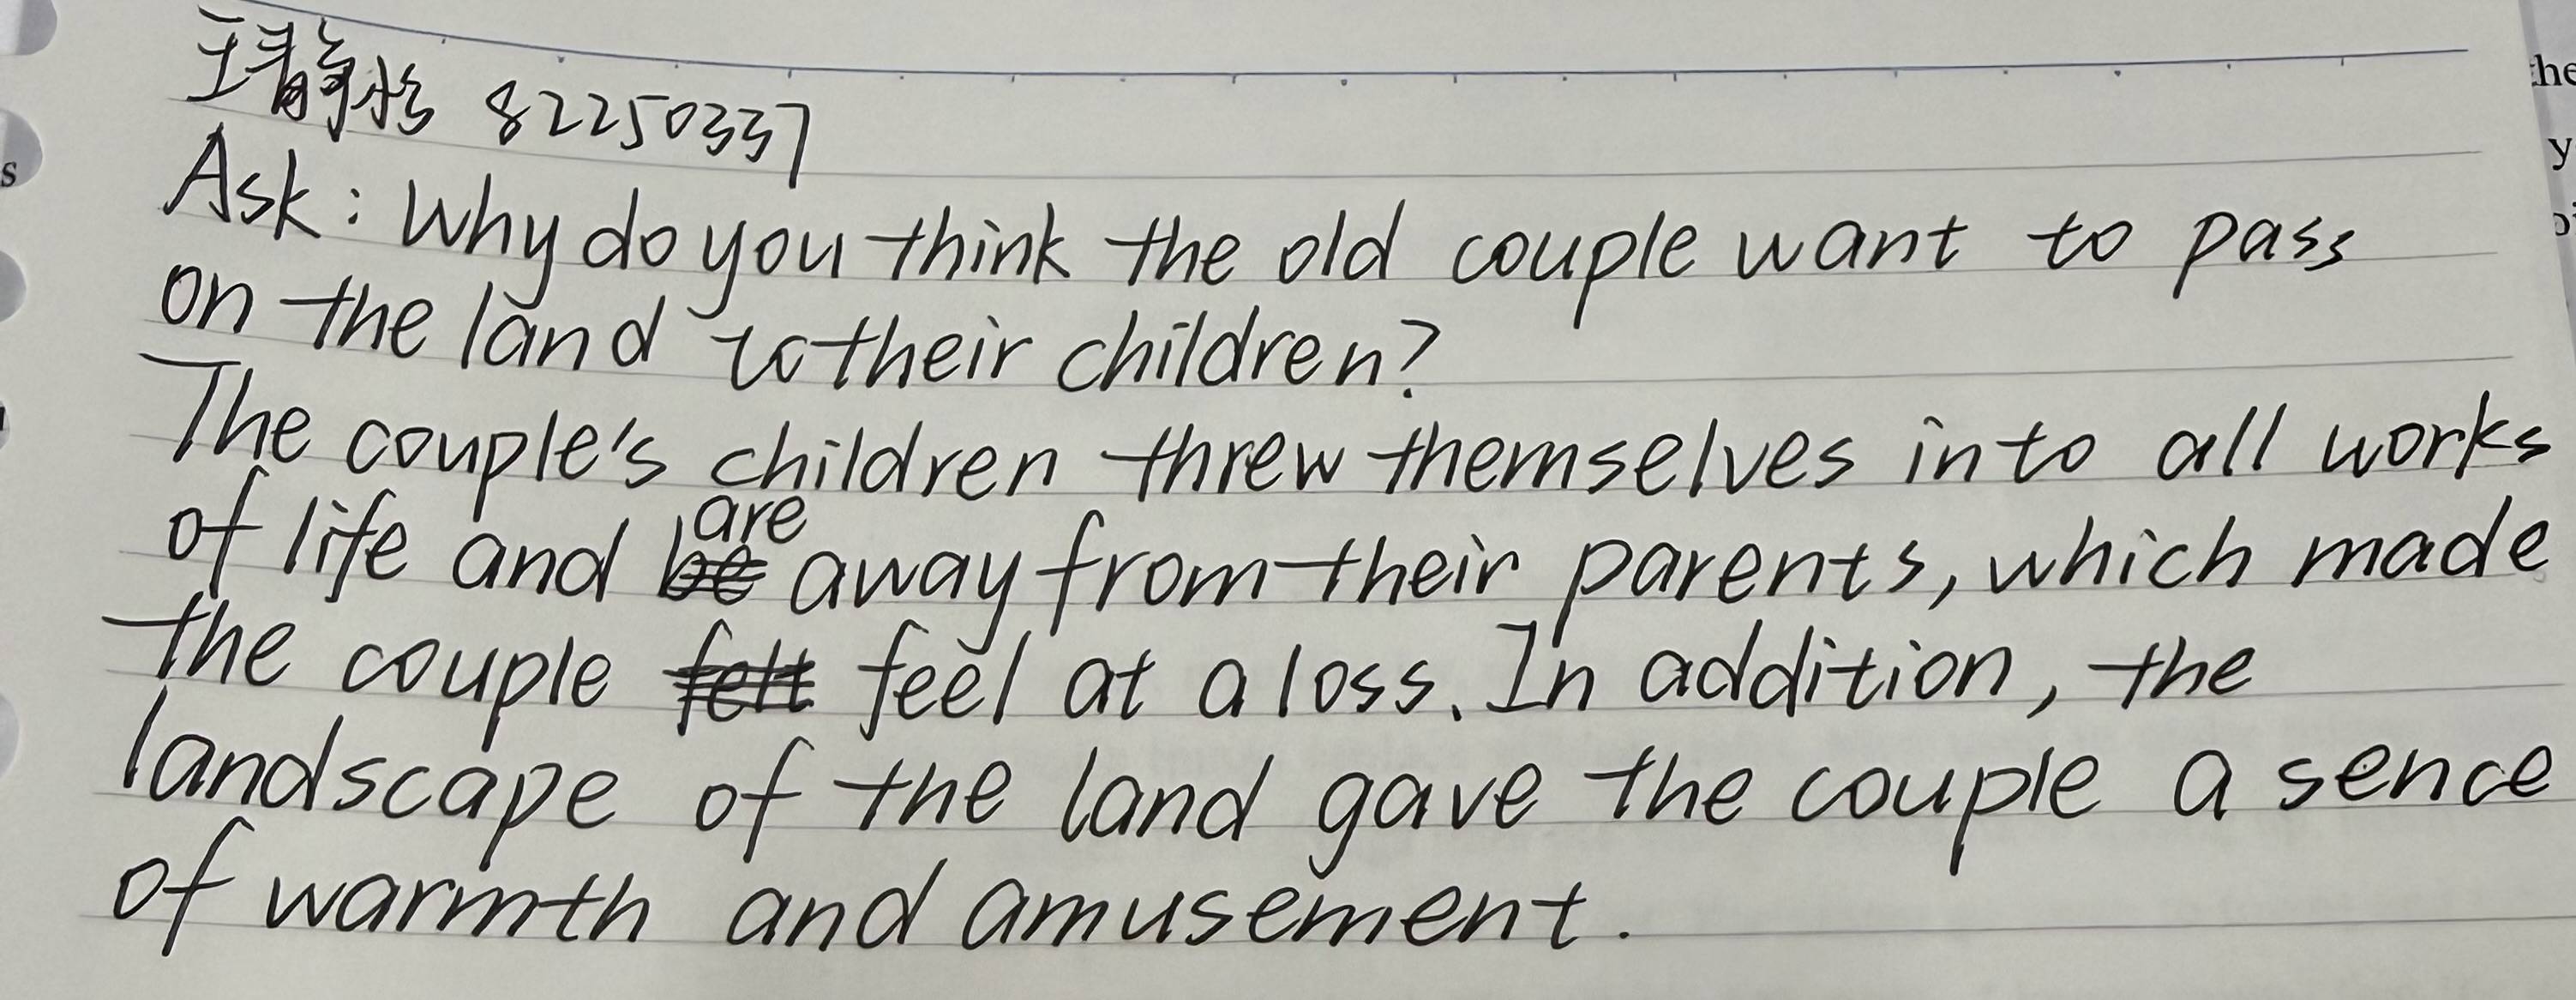 王静怡 82250337
Ask: Why do you think the old couple want to pass
on the land to their children?
The couple's children threw themselves into all works
of life and are away from their parents, which made
the couple feel at a loss. In addition, the
landscape of the land gave the couple a sence
of warmth and amusement.